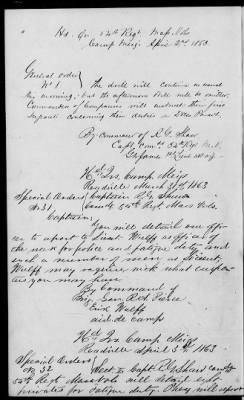 Hd. Qr. 54th Regt. Mass. Vols
Camp Meigs April 2nd 1863
General Orders
No 1 The drill will continue as usual
this morning, but the afternoon drill will be omitted.
Commanders of Companies will instruct their first
Sergeants concerning their duties on Dress Parade.
By command of R. G. Shaw
Capt. Comdg 54th Regt
Hd Qrs Camp Meigs
Readville March 31st 1863
Special Orders Captain R G Shaw
No 31 Comdg 54th Regt Mass Vols.
Captain,
You will detail one offi-
cer to report to Lieut. Wulff as officer of
the week for police and fatigue duty, and
such a number of men as Lieut.
Wulff may require with what
as you may have
By Command of
Brig Gen R A Peirce
Erik Wulff
aid-de camp
Hd Qrs Camp Meigs
Readville April 3rd 1863
Special Orders
No 32 Capt R G Shaw Comdg
54th Regt Mass Vols will detail eight
privates for Fatigue duty. They will report